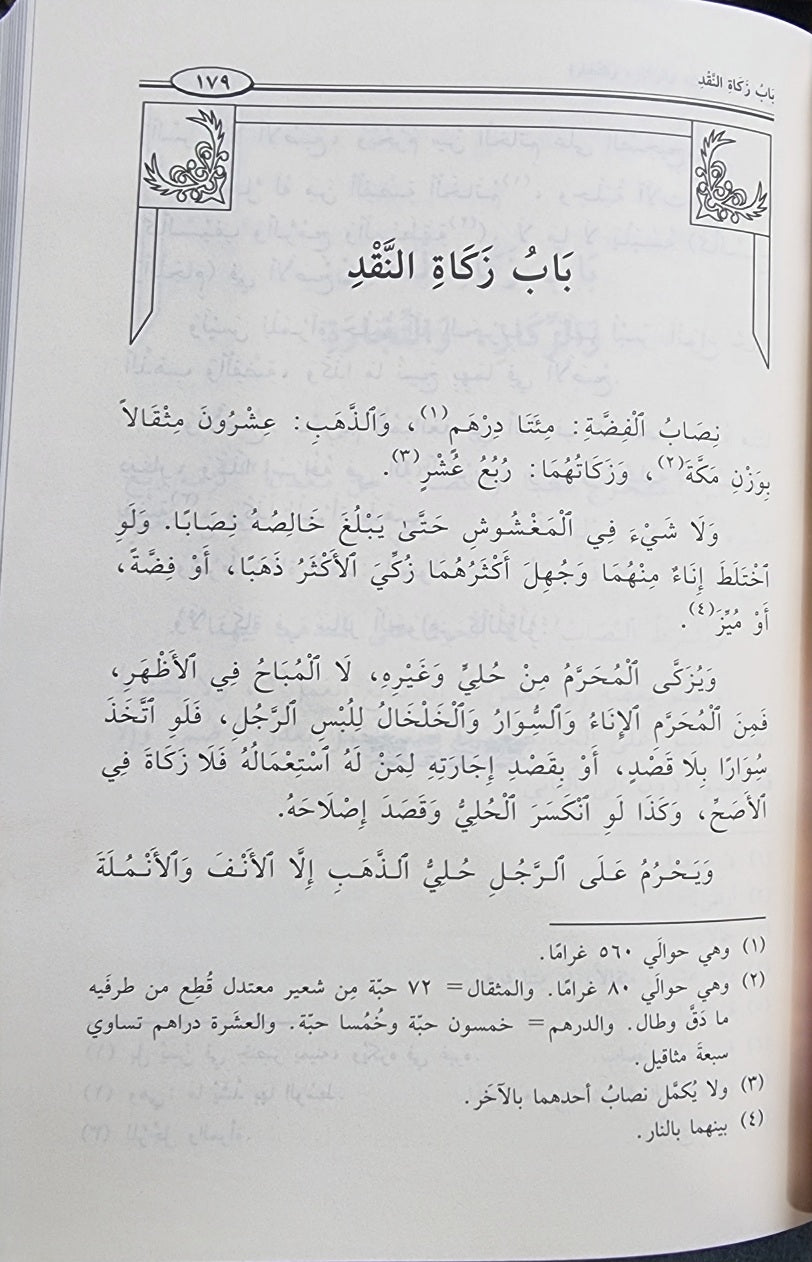 بَابُ زَكَاةِ النَّقْدِ
١٧٩
بَابُ زَكَاةِ النَّقْدِ
نِصَابُ ٱلْفِضَّةِ: مِئَتَا دِرْهَمٍ(١)، وَٱلذَّهَبِ: عِشْرُونَ مِثْقَالاً
بِوَزْنِ مَكَّةَ(٢)، وَزَكَاتُهُمَا: رُبُعُ عُشْرٍ(٣).
وَلَا شَيْءَ فِي ٱلْمَغْشُوشِ حَتَّىٰ يَبْلُغَ خَالِصُهُ نِصَابًا. وَلَوِ
ٱخْتَلَطَ إِنَاءٌ مِنْهُمَا وَجُهِلَ أَكْثَرُهُمَا زُكِّيَ ٱلأَكْثَرُ ذَهَبًا، أَوْ فِضَّةً،
أَوْ مُيِّزَ(٤).
وَيُزَكَّى ٱلْمُحَرَّمُ مِنْ حُلِيٍّ وَغَيْرِهِ، لَا ٱلْمُبَاحُ فِي ٱلأَظْهَرِ،
فَمِنَ ٱلْمُحَرَّمِ ٱلإِنَاءُ وَٱلسِّوَارُ وَٱلْخَلْخَالُ لِلُبْسِ ٱلرَّجُلِ، فَلَوِ ٱتَّخَذَ
سِوَارًا بِلَا قَصْدٍ، أَوْ بِقَصْدِ إِجَارَتِهِ لِمَنْ لَهُ ٱسْتِعْمَالُهُ فَلَا زَكَاةَ فِي
ٱلأَصَحِّ، وَكَذَا لَوِ ٱنْكَسَرَ ٱلْحُلِيُّ وَقَصَدَ إِصْلَاحَهُ.
وَيَحْرُمُ عَلَى ٱلرَّجُلِ حُلِيُّ ٱلذَّهَبِ إِلَّا ٱلأَنْفَ وَٱلأَنْمُلَةَ
(١) وهي حوالَي ٥٦٠ غرامًا.
(٢) وهي حوالَي ٨٠ غرامًا. والمثقال= ٧٢ حبّة مِن شعير معتدل قُطِع من طرفَيه
ما دَقَّ وطال. والدرهم= خمسون حبّة وخُمُسا حبّة. والعشَرة دراهم تساوي
سبعةَ مثاقيل.
(٣) ولا يُكمَّل نصابُ أحدهما بالآخَر.
(٤) بينهما بالنار.